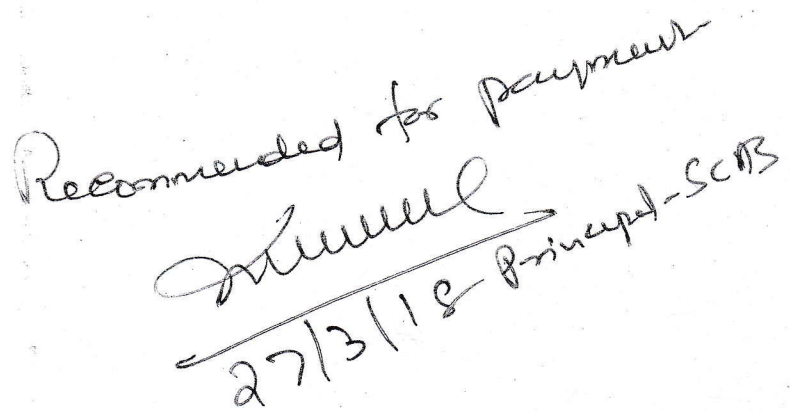 Recommended for payment
27/3/18 Principal-SCAB